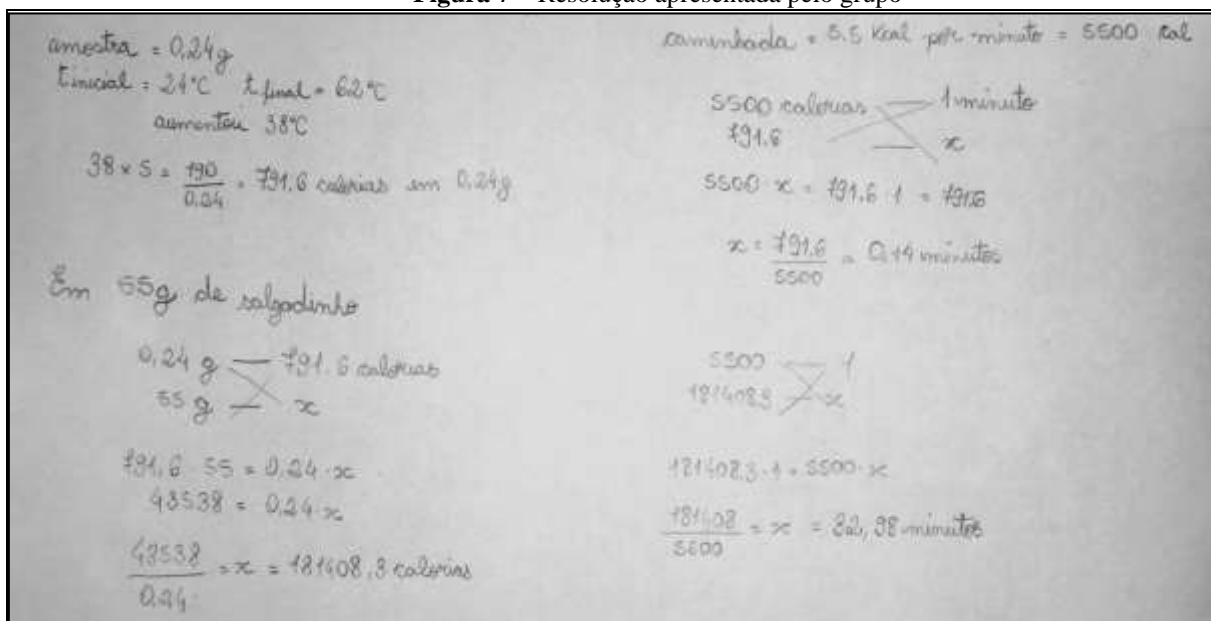 Figura 7 – Resolução apresentada pelo grupo
amostra = 0,24g
t inicial = 24°C t final = 62°C
aumentou 38°C
38 × 5 = 190 / 0,24 = 791.6 calorias em 0,24g
Em 55g de salgadinho
0,24 g — 791.6 calorias
55 g — x
791,6 · 55 = 0,24 · x
43538 = 0,24 · x
43538 / 0,24 = x = 181408,3 calorias
caminhada = 5.5 Kcal por minuto = 5500 cal
5500 calorias — 1 minuto
791.6 — x
5500 · x = 791.6 · 1 = 791.6
x = 791.6 / 5500 = 0,14 minutos
5500 — 1
181408,3 — x
181408,3 · 1 = 5500 · x
181408 / 5500 = x = 32,98 minutos